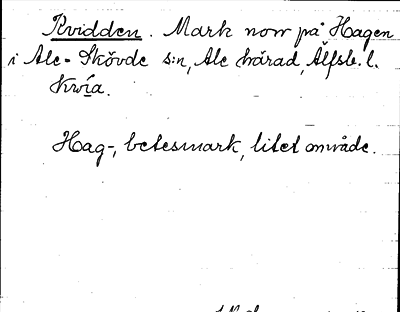 Kvidden. Mark norr på Hagen
i Ale-Skövde s:n, Ale härad, Älfsb. l.
Kwía.
Hag-, betesmark, litet område.